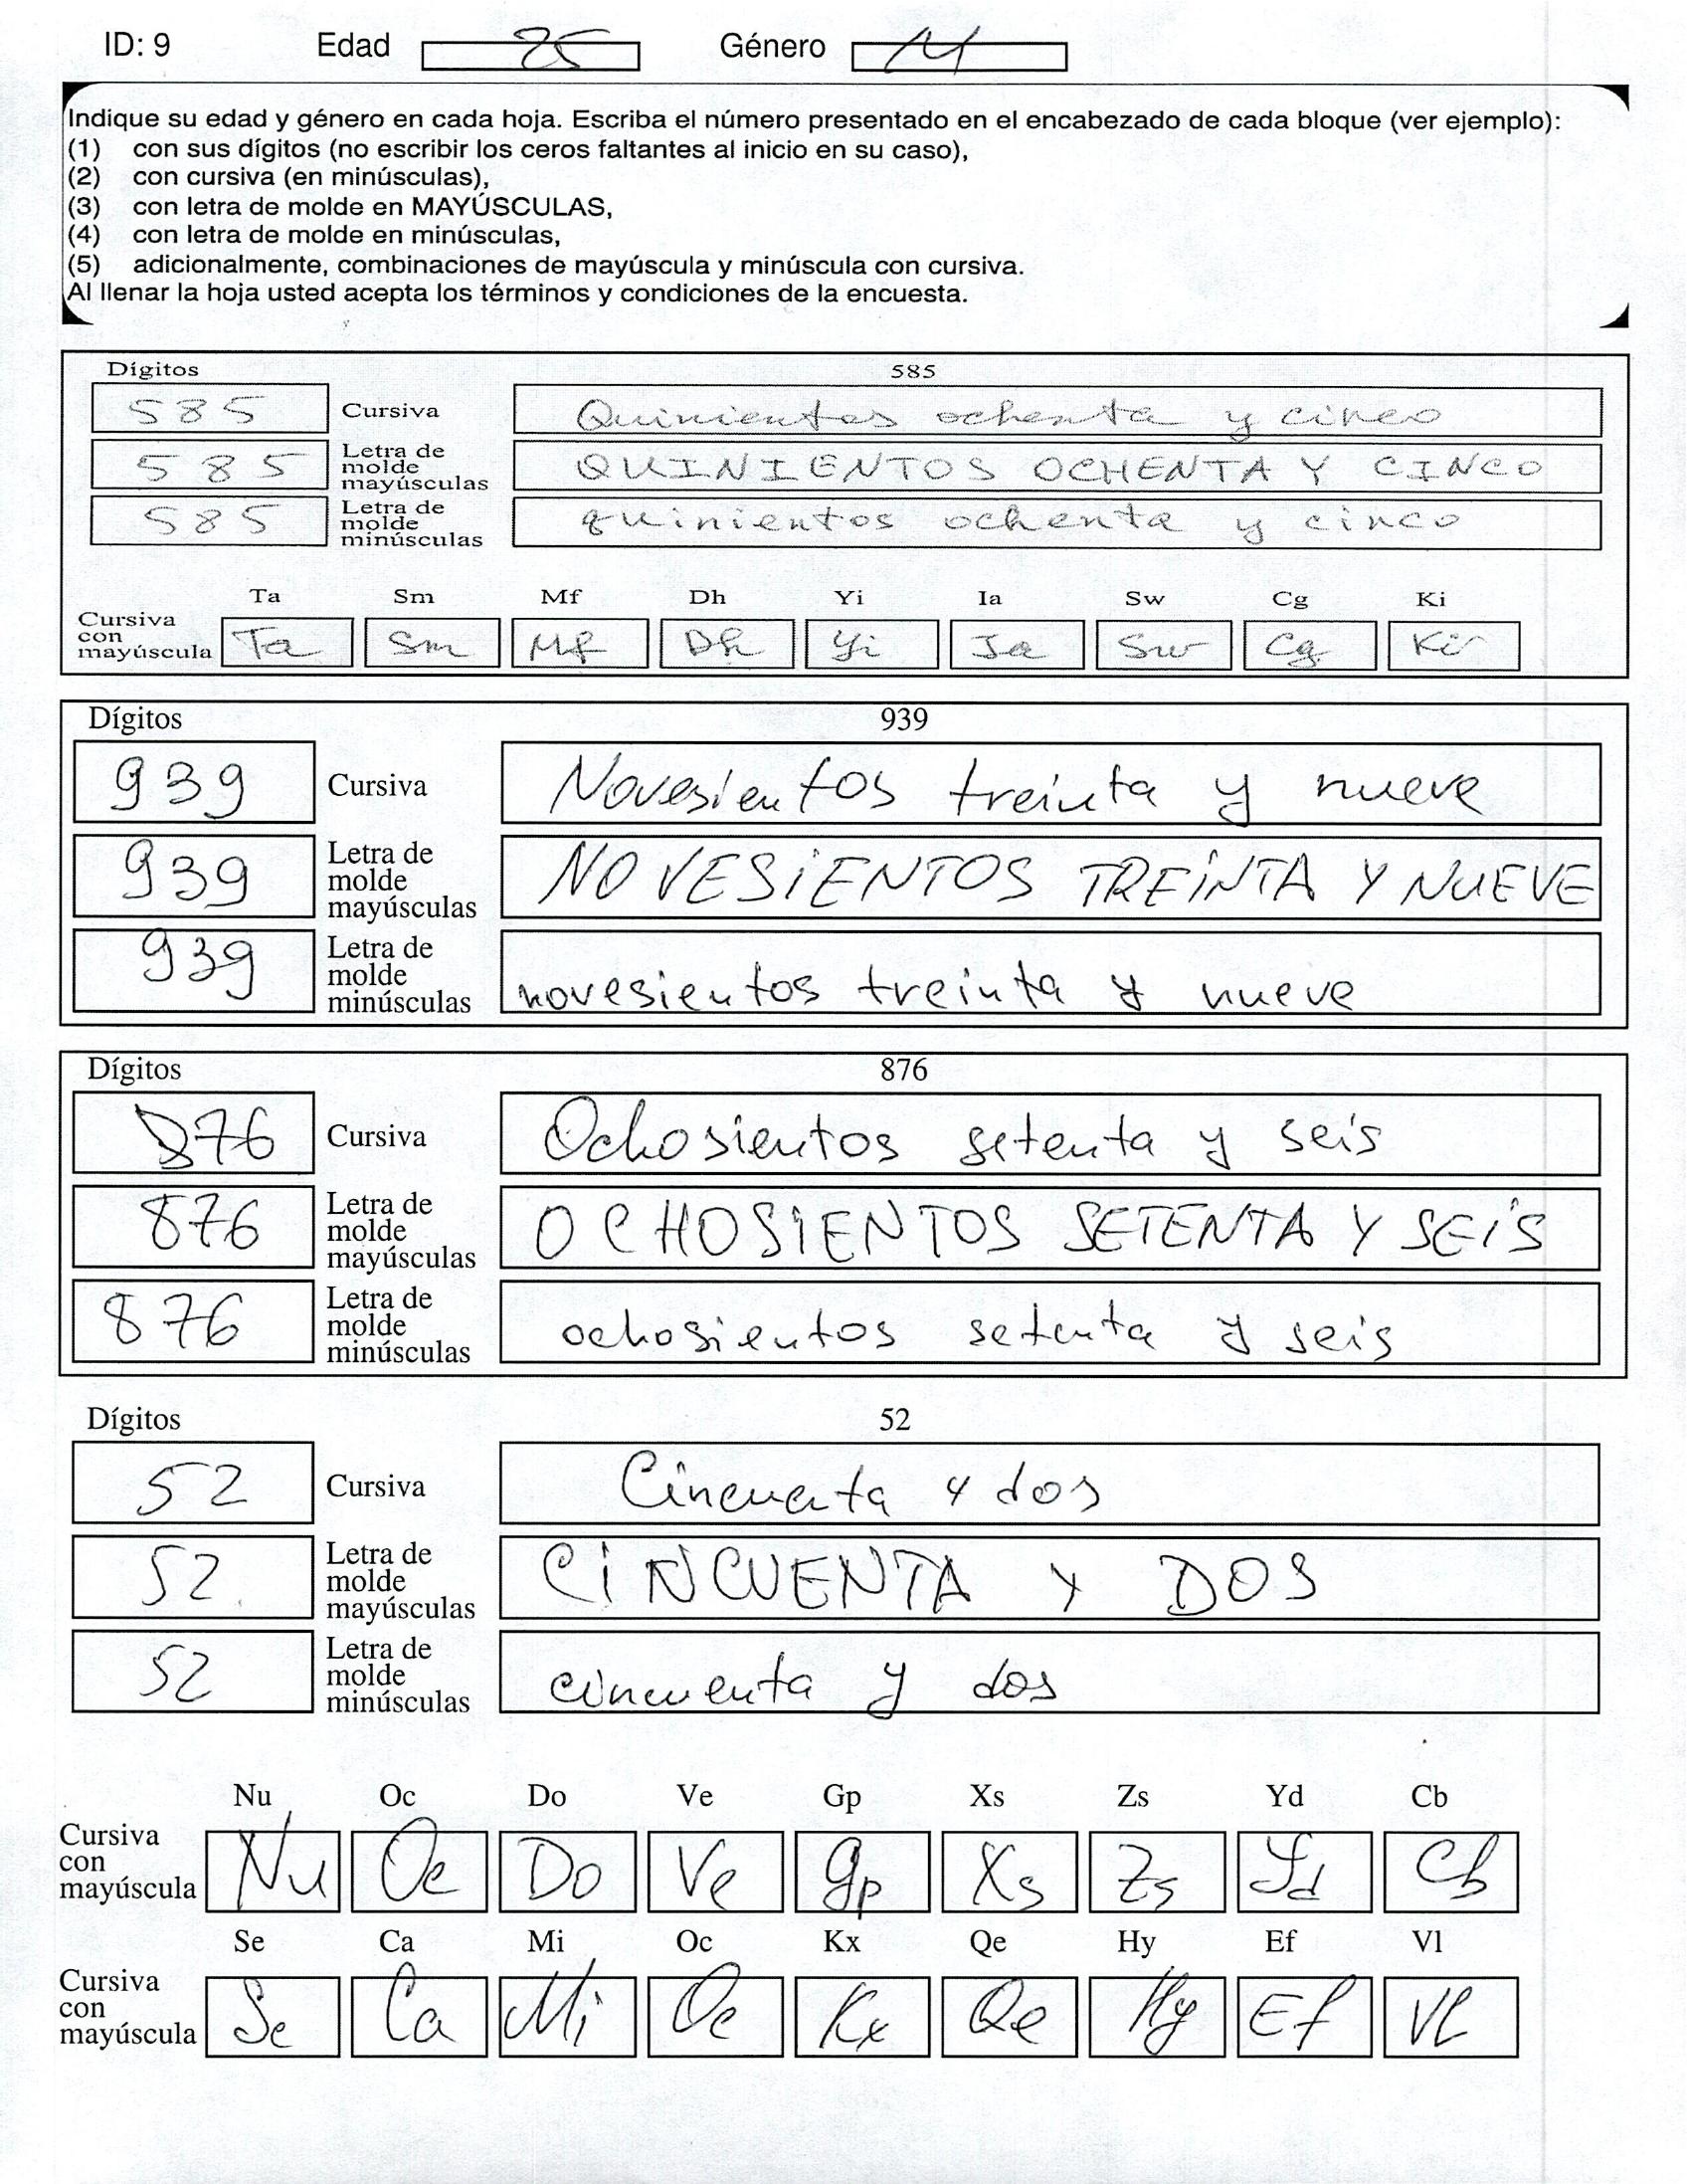 ID: 9 Edad 25 Género M
Indique su edad y género en cada hoja. Escriba el número presentado en el encabezado de cada bloque (ver ejemplo):
(1) con sus dígitos (no escribir los ceros faltantes al inicio en su caso),
(2) con cursiva (en minúsculas),
(3) con letra de molde en MAYÚSCULAS,
(4) con letra de molde en minúsculas,
(5) adicionalmente, combinaciones de mayúscula y minúscula con cursiva.
Al llenar la hoja usted acepta los términos y condiciones de la encuesta.
Dígitos 585
585 Cursiva Quinientos ochenta y cinco
585 Letra de molde mayúsculas QUINIENTOS OCHENTA Y CINCO
585 Letra de molde minúsculas quinientos ochenta y cinco
Ta Sm Mf Dh Yi Ia Sw Cg Ki
Cursiva con mayúscula Ta Sm Mf Dh Yi Ia Sw Cg Ki
Dígitos 939
939 Cursiva Novesientos treinta y nueve
939 Letra de molde mayúsculas NOVESIENTOS TREINTA Y NUEVE
939 Letra de molde minúsculas novesientos treinta y nueve
Dígitos 876
876 Cursiva Ochosientos setenta y seis
876 Letra de molde mayúsculas OCHOSIENTOS SETENTA Y SEIS
876 Letra de molde minúsculas ochosientos setenta y seis
Dígitos 52
52 Cursiva Cincuenta y dos
52 Letra de molde mayúsculas CINCUENTA Y DOS
52 Letra de molde minúsculas cincuenta y dos
Nu Oc Do Ve Gp Xs Zs Yd Cb
Cursiva con mayúscula Nu Oc Do Ve Gp Xs Zs Yd Cb
Se Ca Mi Oc Kx Qe Hy Ef Vl
Cursiva con mayúscula Se Ca Mi Oc Kx Qe Hy Ef Vl